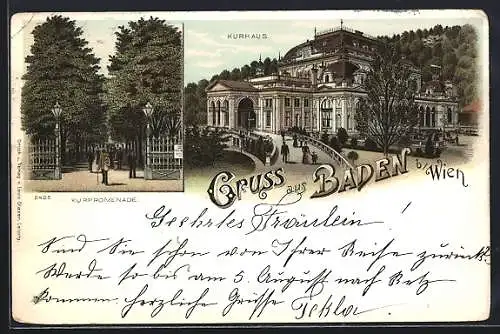 KURHAUS
KURPROMENADE.
Gruss aus BADEN b/Wien
Geehrtes Fräulein!
Sind Sie schon von Ihrer Reise zurück?
Werde so bis am 5. August nach Retz
kommen. herzliche Grüsse Tekla